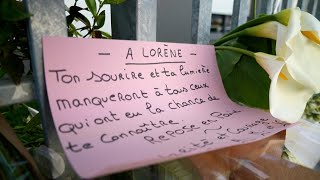 - A LORÈNE -
Ton sourire et ta lumière
manqueront à tous ceux
qui ont eu la chance de
te connaître.
Repose en Paix